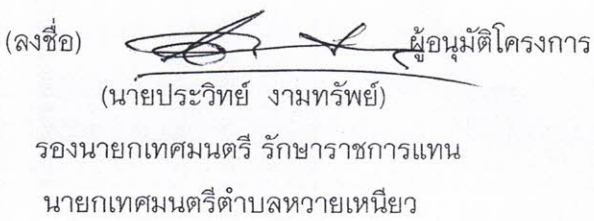 (ลงชื่อ) ผู้อนุมัติโครงการ
(นายประวิทย์ งามทรัพย์)
รองนายกเทศมนตรี รักษาราชการแทน
นายกเทศมนตรีตำบลหวายเหนียว